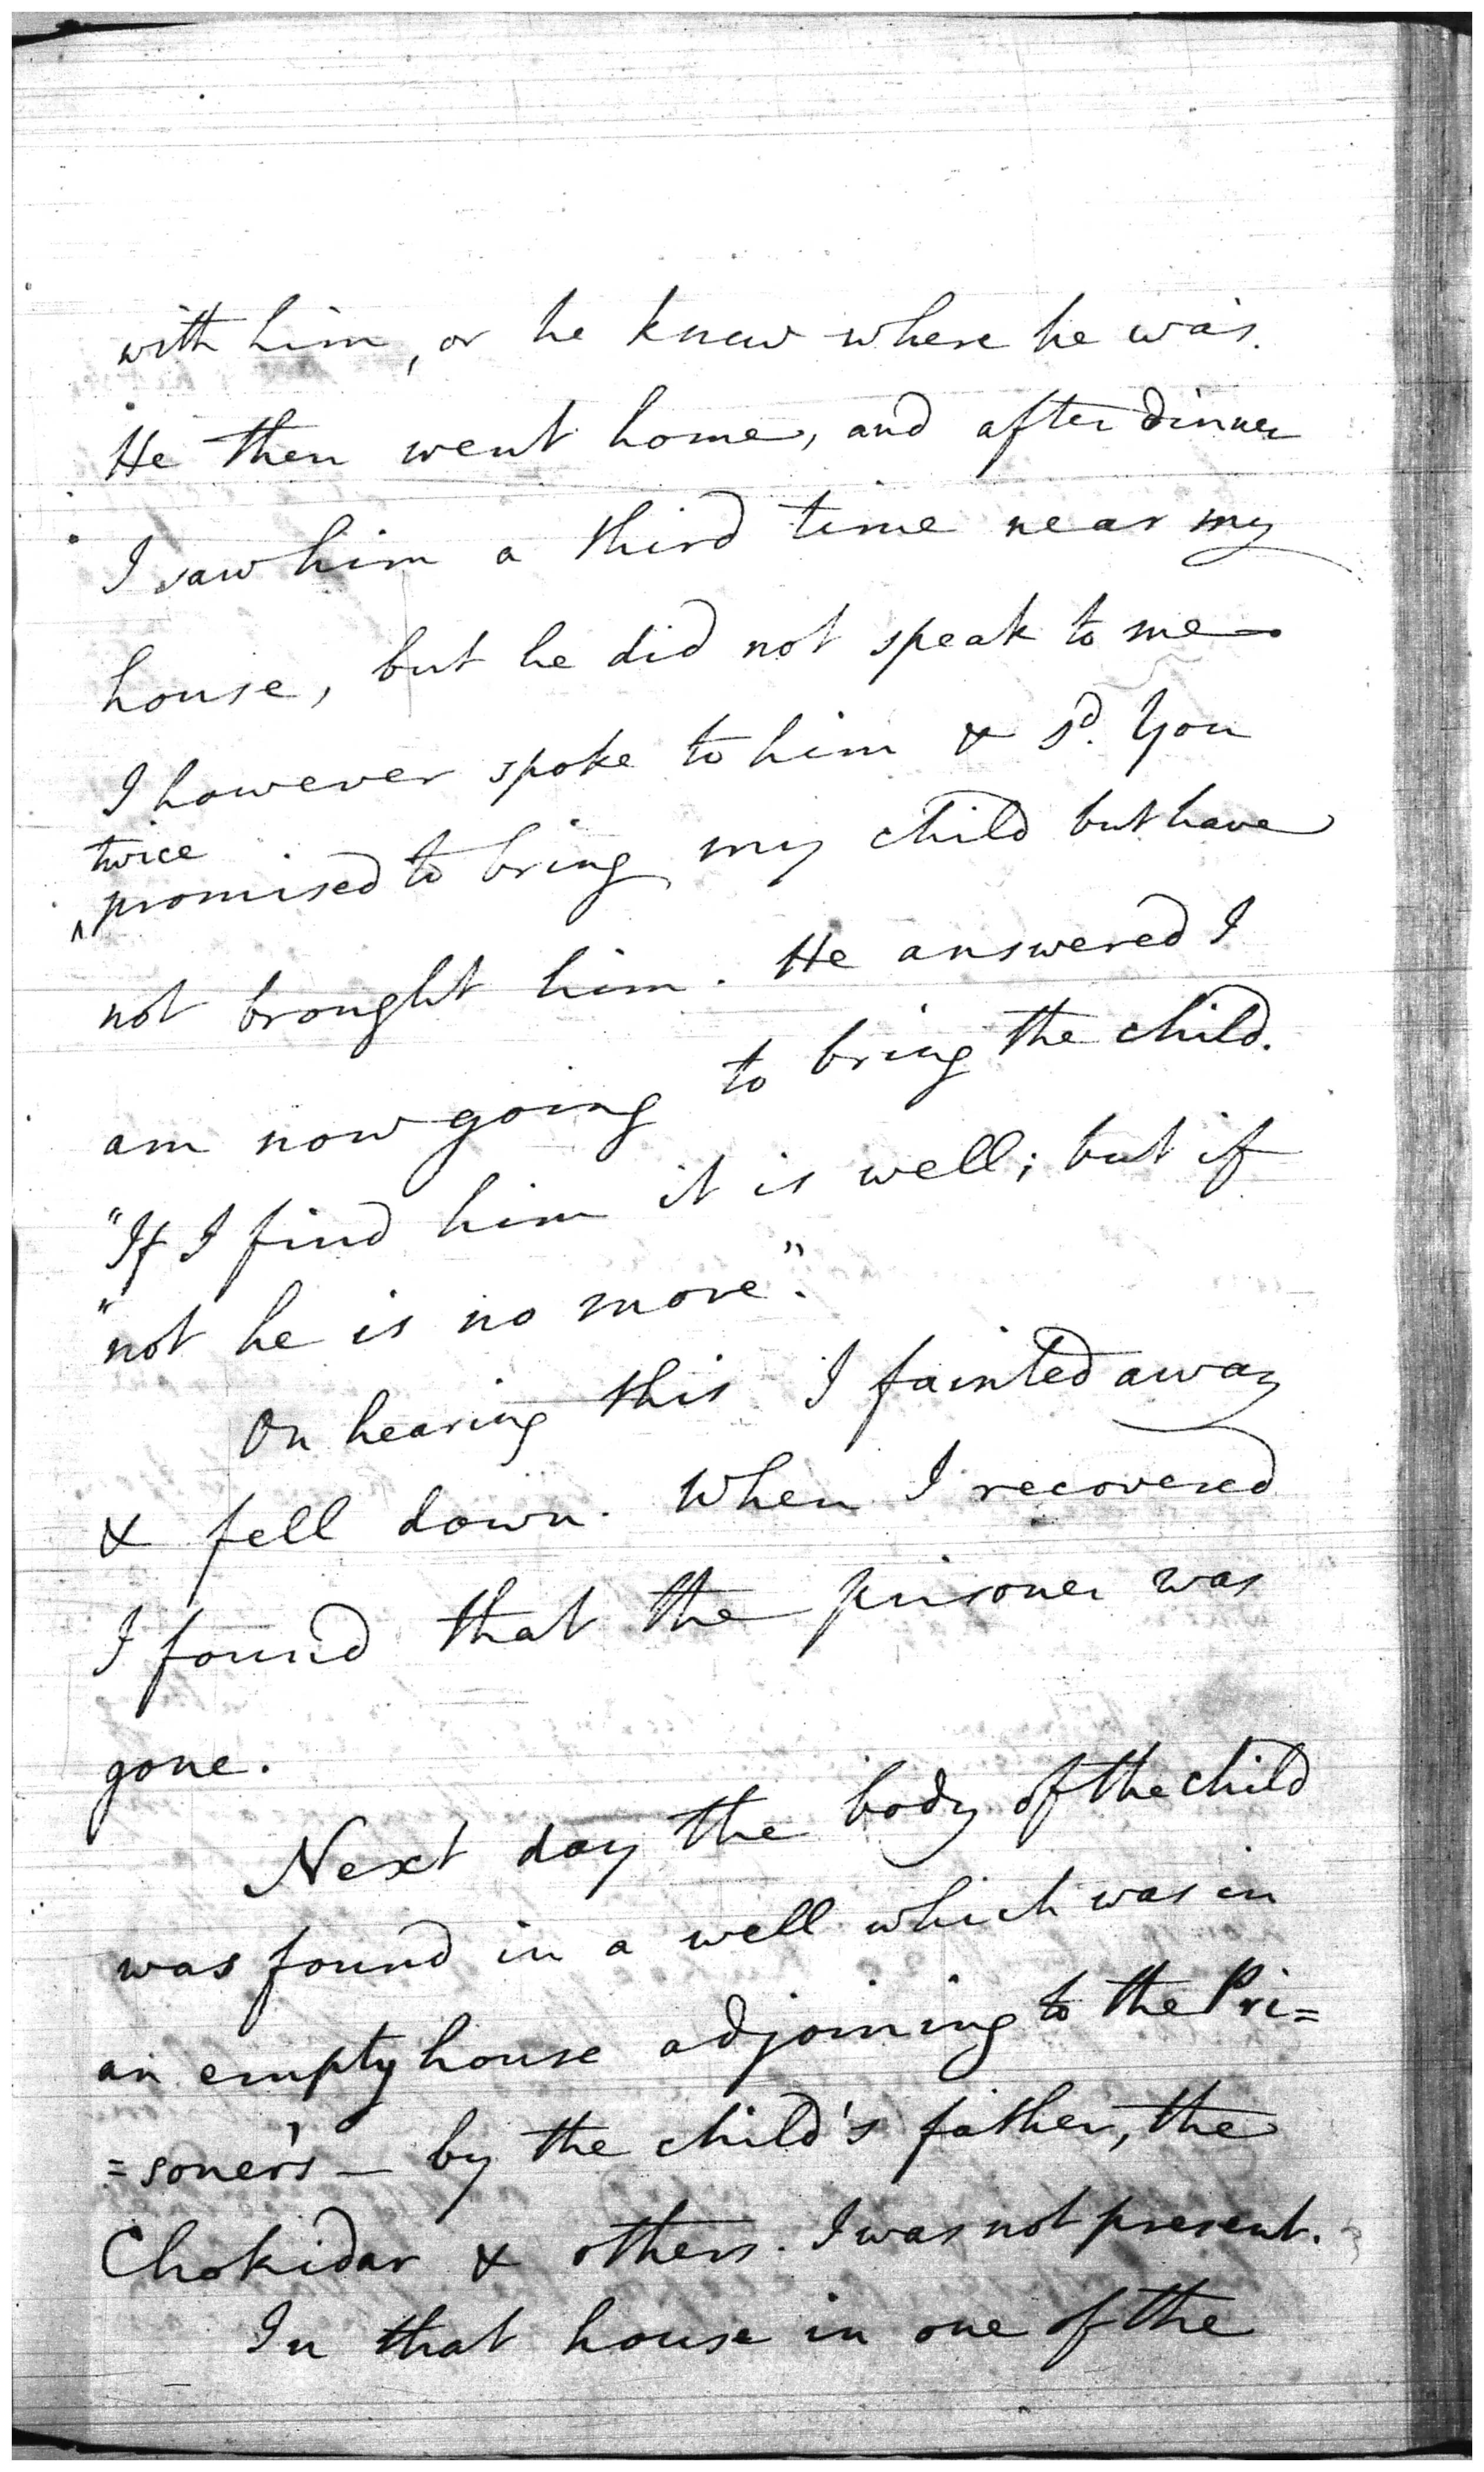 with him, or he knew where he was.
He then went home, and after dinner
I saw him a third time near my
house, but he did not speak to me
I however spoke to him & sd. You
twice
^promised to bring my child but have
not brought him. He answered I
am now going to bring the child.
"If I find him it is well; but if
"not he is no more".
On hearing this I fainted away
& fell down. When I recovered
I found that the prisoner was
gone.
Next day the body of the child
was found in a well which was in
an empty house adjoining to the Pri=
=soner's — by the child's father, the
Chokidar & others. I was not present.
In that house in one of the